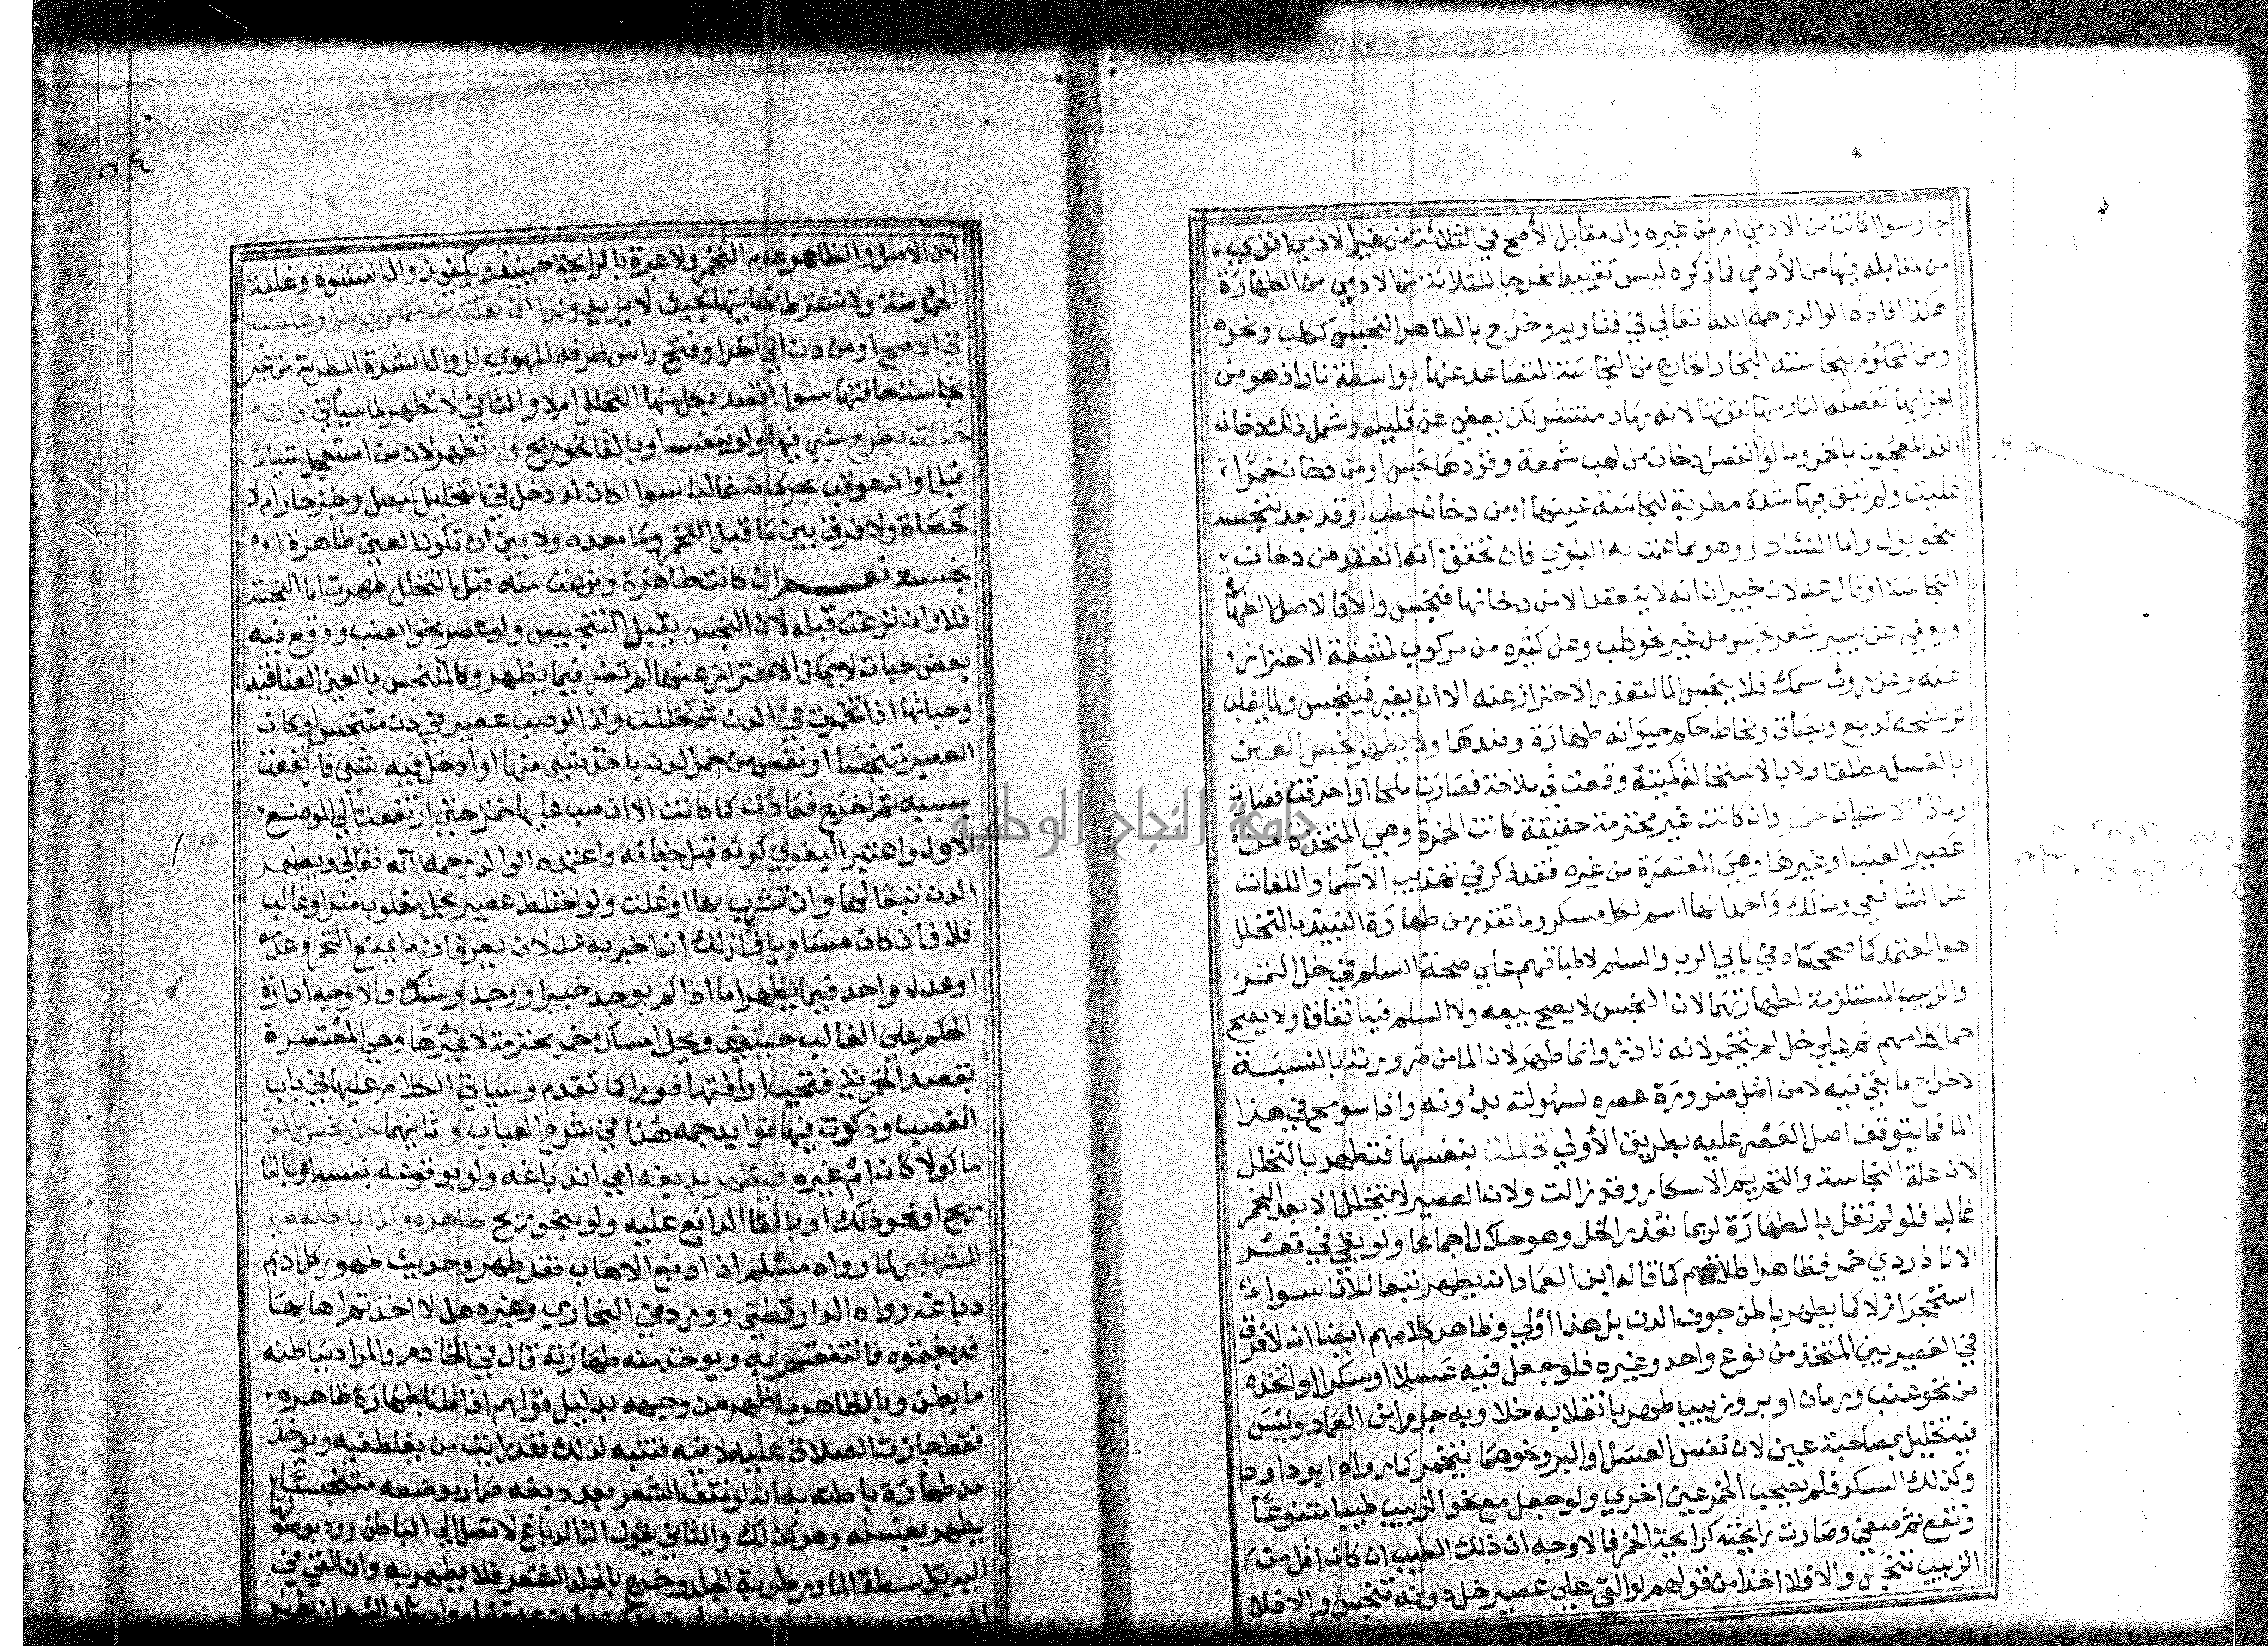 جا وسوا كانت من الادمي ام من غيره وان مقابل الأصح في الثلاثة من غير الادمي اقوي
من مقابله فيها من الأدمي فما ذكره ليس تقييدا مخرجا للثلاثة من الادمي من الطهارة
هكذا افاده الوالد رحمه الله تعالي في فتاويه وخرج بالطاهر النجس ككلب ونحوه
ومن المحكوم بنجاسته البخار الخارج من النجاسة المتصاعد عنها بواسطة نار اذ هو من
اجزايها تفصله النار منها لقوتها لانه رماد منتشر لكن يعفي عن قليله وشمل ذلك دخان
الند المعجون بالخمر وما لو انفصل دخان من لهب شمعة وقودها نجس او من دخان خمر ا
غليت ولم تبق فيها شدة مطربة لنجاسة عينها او من دخان حطب اوقد بعد تنجسه
بنحو بول واما النشادر وهو مما عمت به البلوي فان تحقق انه انعقد من دخان
النجاسة او قال عدلان خبيران انه لا ينعقد الا من دخانها فنجس والا فالاصل الطها
ويعفي عن يسير شعر نجس من غير نحو كلب وعن كثيره من مركوب لمشقة الاحتراز
عنه وعن روث سمك فلا ينجس الما لتعذر الاحتراز عنه الا ان يغير فينجس ولما يغلب
ترشحه كدمع وبصاق ومخاط حكم حيوانه طهارة وضدها ولا يطهر نجس العين
بالغسل مطلقا ولا بالاستحالة كميتة وقعت في ملاحة فصارت ملحا او احرقت فصارت
رمادا الا شيان خمر وان كانت غير محترمة حقيقة كانت الخمرة وهي المتخذة من
عصير العنب او غيرها وهي المعتصرة من غيره فقد ذكر في تهذيب الأسما واللغات
عن الشافعي ومالك وأحمد انها اسم لكل مسكر وما تقدم من طهارة النبيذ بالتخلل
هو المعتمد كما صححاه في بابي الربا والسلم لاطباقهم علي صحة السلم في خل التمر
والزبيب المستلزمة لطهارتهما لان النجس لا يصح بيعه ولا السلم فيه اتفاقا ولا يصح
حمل كلامهم ثم علي خل لم يتخمر لانه نادر وانما طهر لان الما من ضرورته بالنسبة
لاخراج ما بقي فيه لامن اصل ضرورة عصره لسهولته بدونه واذا سومح في هذا
الما فما يتوقف اصل العصر عليه بطريق الأولي تخللت بنفسها فتطهر بالتخلل
لان علة النجاسة والتحريم الاسكار وقد زالت ولان العصير لا يتخلل الا بعد التخمر
غالبا فلو لم نقل بالطهارة لربما تعذر الخل وهو حلال اجماعا ولو بقي في قعر
الانا دردي خمر فظاهر اطلاقهم كما قاله ابن العماد انه يطهر تبعا للانا سواء
استحجر ام لا كما يطهر باطن جوف الدن بل هذا أولي وظاهر كلامهم ايضا انه لا فرق
في العصير بين المتخذ من نوع واحد وغيره فلو جعل فيه عسلا او سكرا او اتخذه
من نحو عنب ورمان او بر وزبيب طهر بانقلابه خلا وبه جزم ابن العماد وليس
فيه تخليل بمصاحبة عين لان نفس العسل او البر ونحوهما يتخمر كما رواه ابو داود
وكذلك السكر فلم يصحب الخمر عين اخري ولو جعل مع نحو الزبيب طيبا متنوعا
ونقع ثم صفي وصارت رايحته كرايحة الخمر فالاوجه ان ذلك الطيب ان كان اقل من
الزبيب تنجس والا فلا اخذا من قولهم لو القي علي عصير خل دونه تنجس والا فلا
٥٤
لان الاصل والظاهر عدم التخمر ولا عبرة بالرايحة حينيذ ويكفي زوال النشوة وغلبة
الحموضة ولا تشترط نهايتها بحيث لا يزيد وكذا ان نقلت من شمس الي ظل وعكسه
في الاصح او من دن الي أخر او فتح راس ظرفه للهوي لزوال الشدة المطربة من غير
نجاسة خلفتها سوا اقصد بكل منها التخلل ام لا والثاني لا تطهر لما سيأتي فان
خللت بطرح شي فيها ولو بنفسه او بالقا نحو ريح فلا تطهر لان من استعجل شياء
قبل اوانه عوقب بحرمانه غالبا سوا اكان له دخل في التخليل كبصل وخبز حار ام لا
كحصاة ولا فرق بين ما قبل التخمر وما بعده ولا بين ان تكون العين طاهرة او
نجسة نعم ان كانت طاهرة ونزعت منه قبل التخلل طهرت اما النجسة
فلا وان نزعت قبله لان النجس يقبل التنجيس ولو عصر نحو العنب ووقع فيه
بعض حبات لا يمكن الاحتراز عنها لم تضر فيما يظهر وكالمتنجس بالعين العناقيد
وحباتها اذا تخمرت في الدن ثم تخللت وكذا لو صب عصير في دن متنجس او كان
العصير متنجسا او نقص من خمر الدن باخذ شي منها او ادخل فيه شي فارتفعت
بسببه ثم اخرج فعادت كما كانت الا ان صب عليها خمر حتي ارتفعت الي الموضع
الاول واعتبر البغوي كونه قبل جفافه واعتمده الوالد رحمه الله تعالي ويطهر
الدن تبعا لها وان تشرب بها او غلت ولو اختلط عصير بخل مغلوب ضر او غالب
فلا فان كان مساويا فكذلك ان اخبر به عدلان يعرفان ما يمنع التخمر وعدمه
او عدل واحد فيما يظهر اما اذا لم يوجد خبير او وجد وشك فالاوجه ادارة
الحكم علي الغالب حينيذ ويحل امساك خمر محترمة لا غيرها وهي المعتصرة
بقصد الخمرية فتجب اراقتها فورا كما تقدم وسياتي الكلام عليها في باب
الغصب وذكرت فيها فوايد جمه هنا في شرح العباب وثانيهما جلد نجس بالموت
ماكولا كان ام غيره فيطهر بدبغه اي اندباغه ولو بوقوعه بنفسه او بالقا
ريح او نحو ذلك او بالقا الدابغ عليه ولو بنحو ريح ظاهره وكذا باطنه علي
المشهور لما رواه مسلم اذا دبغ الاهاب فقد طهر وحديث طهور كل اديم
دباغه رواه الدارقطني وورد في البخاري وغيره هلا اخذتم اهابها
فدبغتموه فانتفعتم به ويوخذ منه طهارته قال في الخادم والمراد بباطنه
ما بطن وبالظاهر ما ظهر من وجهيه بدليل قولهم اذا قلنا بطهارة ظاهره
فقط جازت الصلاة عليه لا فيه فتنبه لذلك فقد رايت من يغلط فيه ويوخذ
من طهارة باطنه به انه لو نتف الشعر بعد دبغه صار موضعه متنجسا
يطهر بغسله وهو كذلك والثاني يقول الة الدباغ لا تصل الي الباطن ورد بوصولها
اليه بواسطة الما ورطوبة الجلد وخرج بالجلد الشعر فلا يطهر به وان القي في